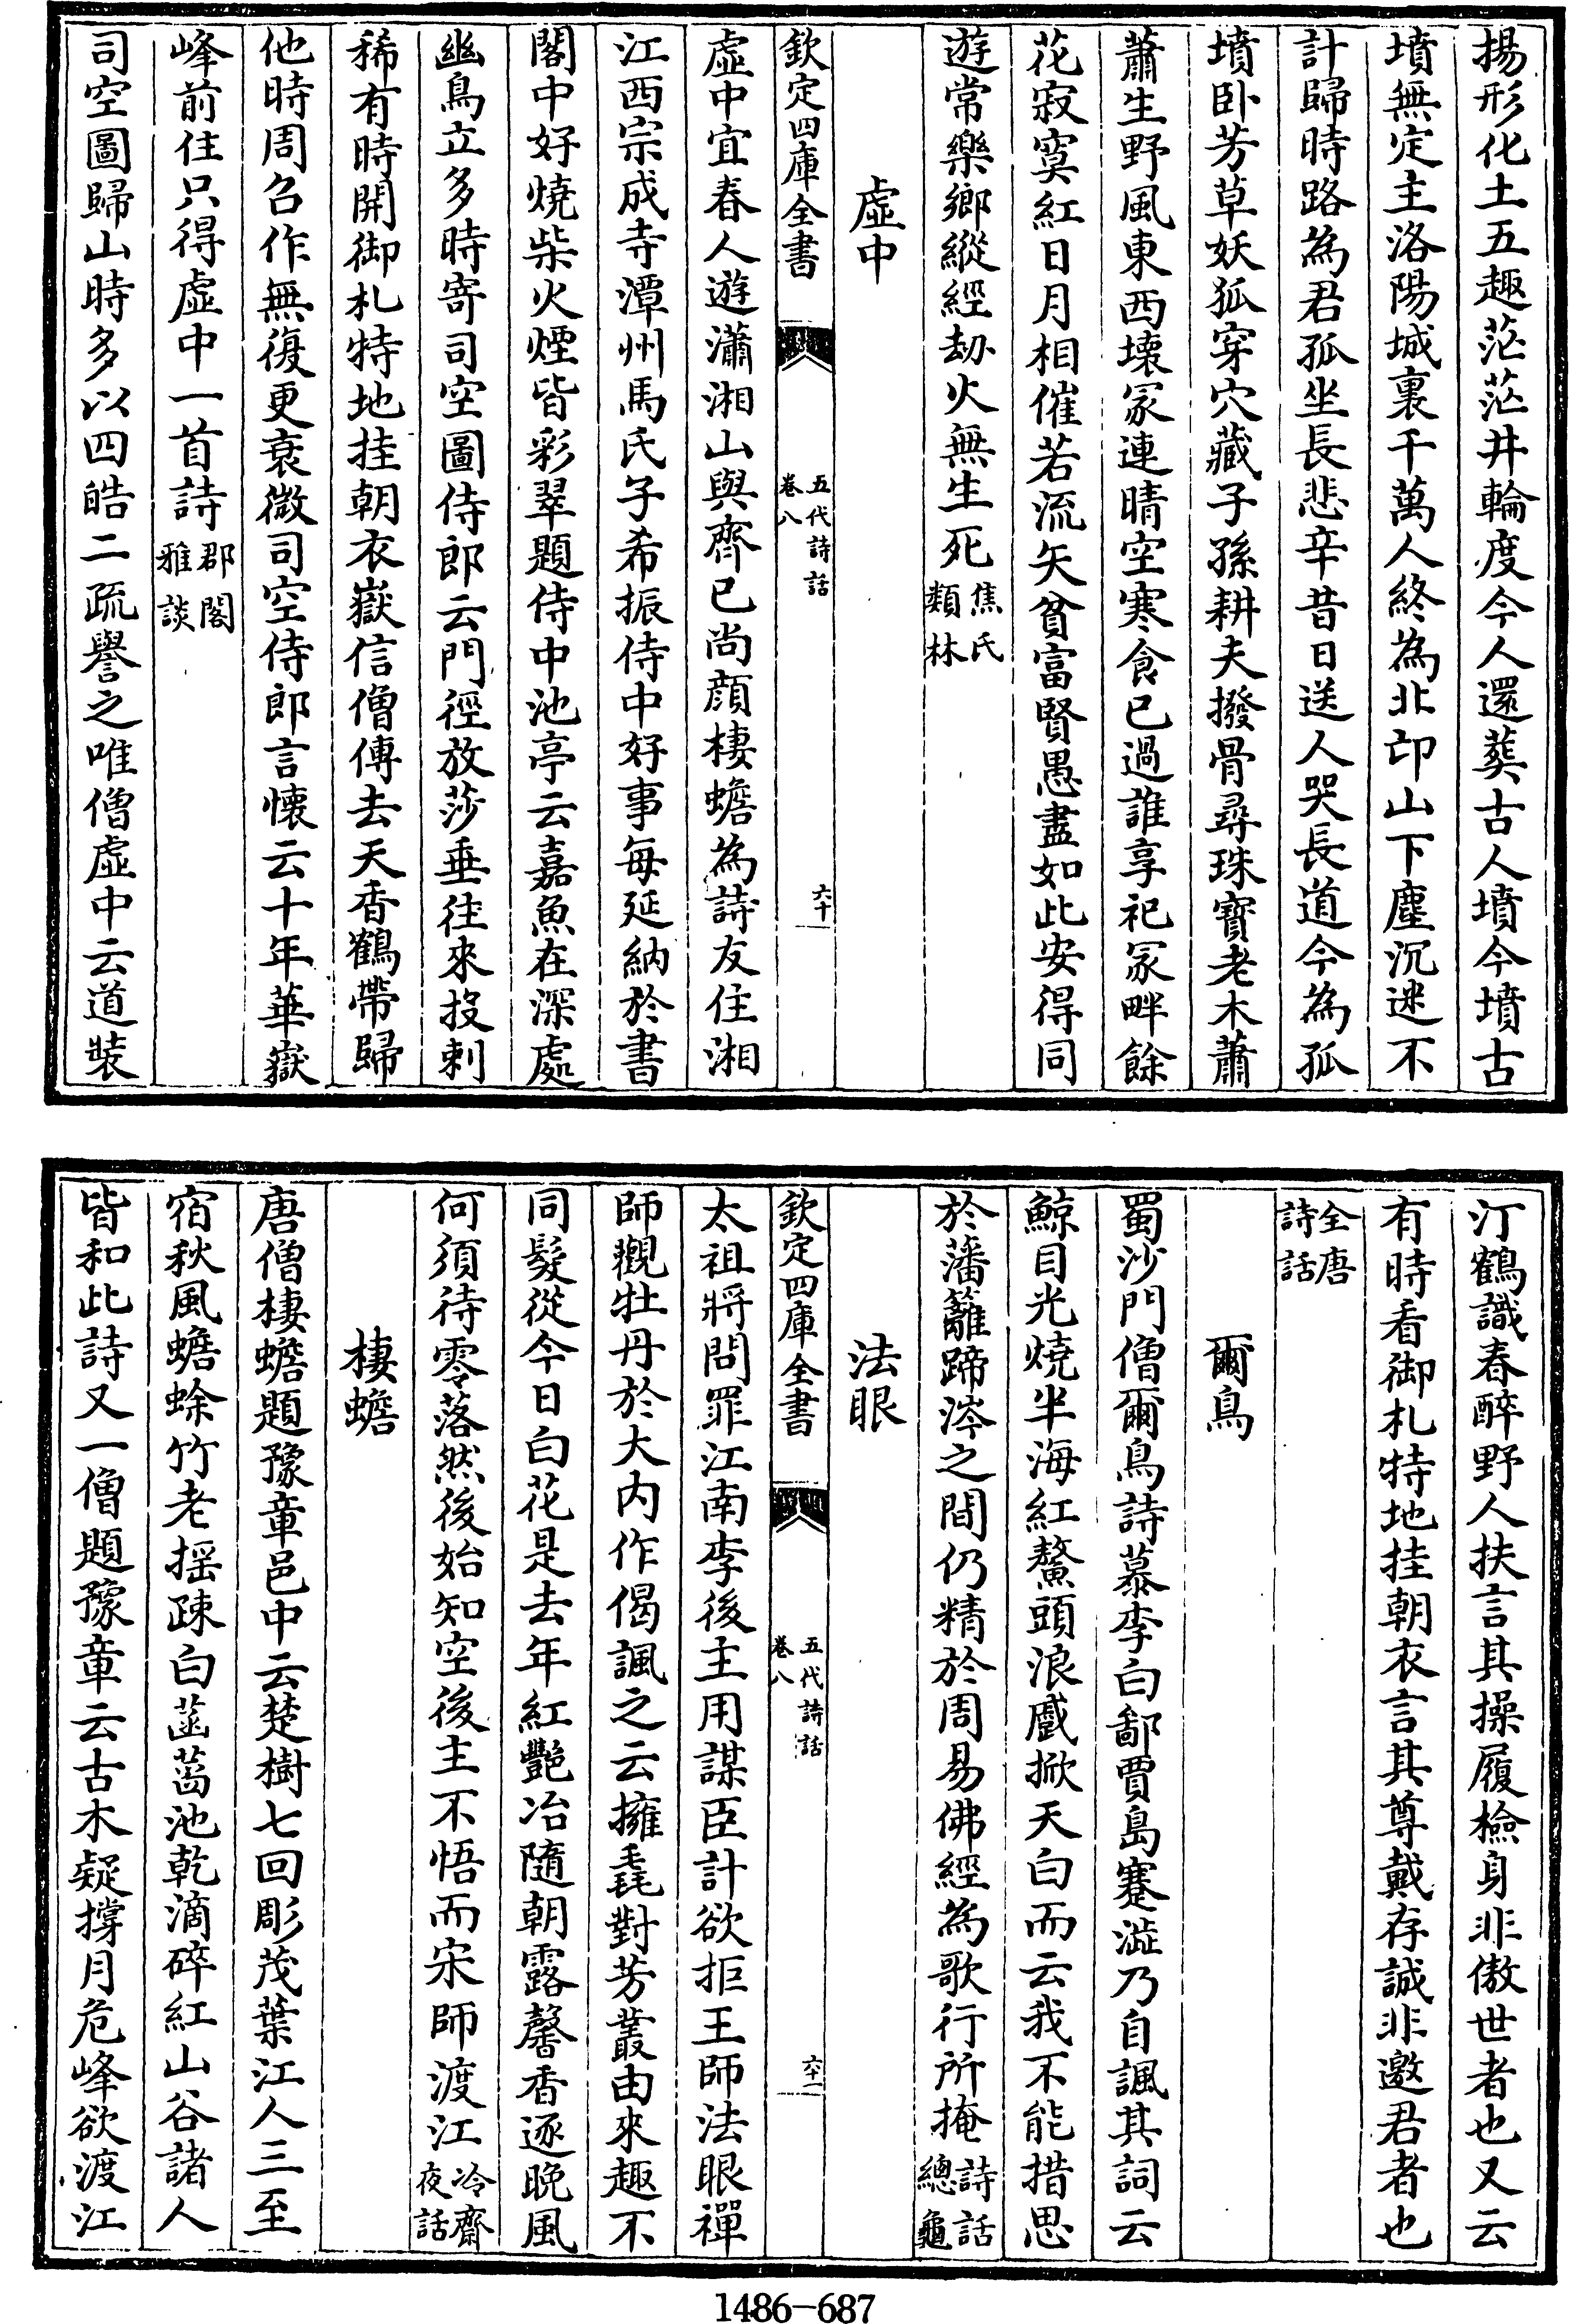 揚形化土五趣茫茫井輪度今人還葬古人墳今墳古
墳無定主洛陽城裏千萬人終為北邙山下塵沉迷不
計歸時路為君孤坐長悲辛昔日送人哭長道今為孤
墳卧芳草妖狐穿穴藏子孫耕夫撥骨尋珠寶老木蕭
蕭生野風東西壞冢連晴空寒食已過誰享祀冢畔餘
花寂寞紅日月相催若流矢貧富賢愚盡如此安得同
遊常樂鄉縱經劫火無生死焦氏類林
虛中
欽定四庫全書
五代詩話
卷八
六十
虛中宜春人遊瀟湘山與齊已尚顔棲蟾為詩友住湘
江西宗成寺潭州馬氏子希振侍中好事每延納於書
閣中好燒柴火煙皆彩翠題侍中池亭云嘉魚在深處
幽鳥立多時寄司空圖侍郎云門徑放莎垂往來投剌
稀有時開御札特地挂朝衣嶽信僧傳去天香鶴帶歸
他時周召作無復更衰微司空侍郎言懷云十年華嶽
峰前住只得虛中一首詩郡閣雅談
司空圖歸山時多以四皓二疏譽之唯僧虛中云道裝
汀鶴識春醉野人扶言其操履檢身非傲世者也又云
有時看御札特地挂朝衣言其尊戴存誠非邀君者也
全唐詩話
爾鳥
蜀沙門僧爾鳥詩慕李白鄙賈島蹇澁乃自諷其詞云
鯨目光燒半海紅鰲頭浪戲掀天白而云我不能措思
於藩籬蹄涔之間仍精於周易佛經為歌行所掩詩話總龜
法眼
欽定四庫全書
五代詩話
卷八
六十一
太祖將問罪江南李後主用謀臣計欲拒王師法眼禪
師觀牡丹於大内作偈諷之云擁毳對芳叢由來趣不
同髮從今日白花是去年紅艷冶隨朝露馨香逐晚風
何須待零落然後始知空後主不悟而宋師渡江冷齋夜話
棲蟾
唐僧棲蟾題豫章邑中云楚樹七回彫茂葉江人三至
宿秋風蟾蜍竹老搖疎白菡萏池乾滴碎紅山谷諸人
皆和此詩又一僧題豫章云古木疑撐月危峰欲渡江
1486—687